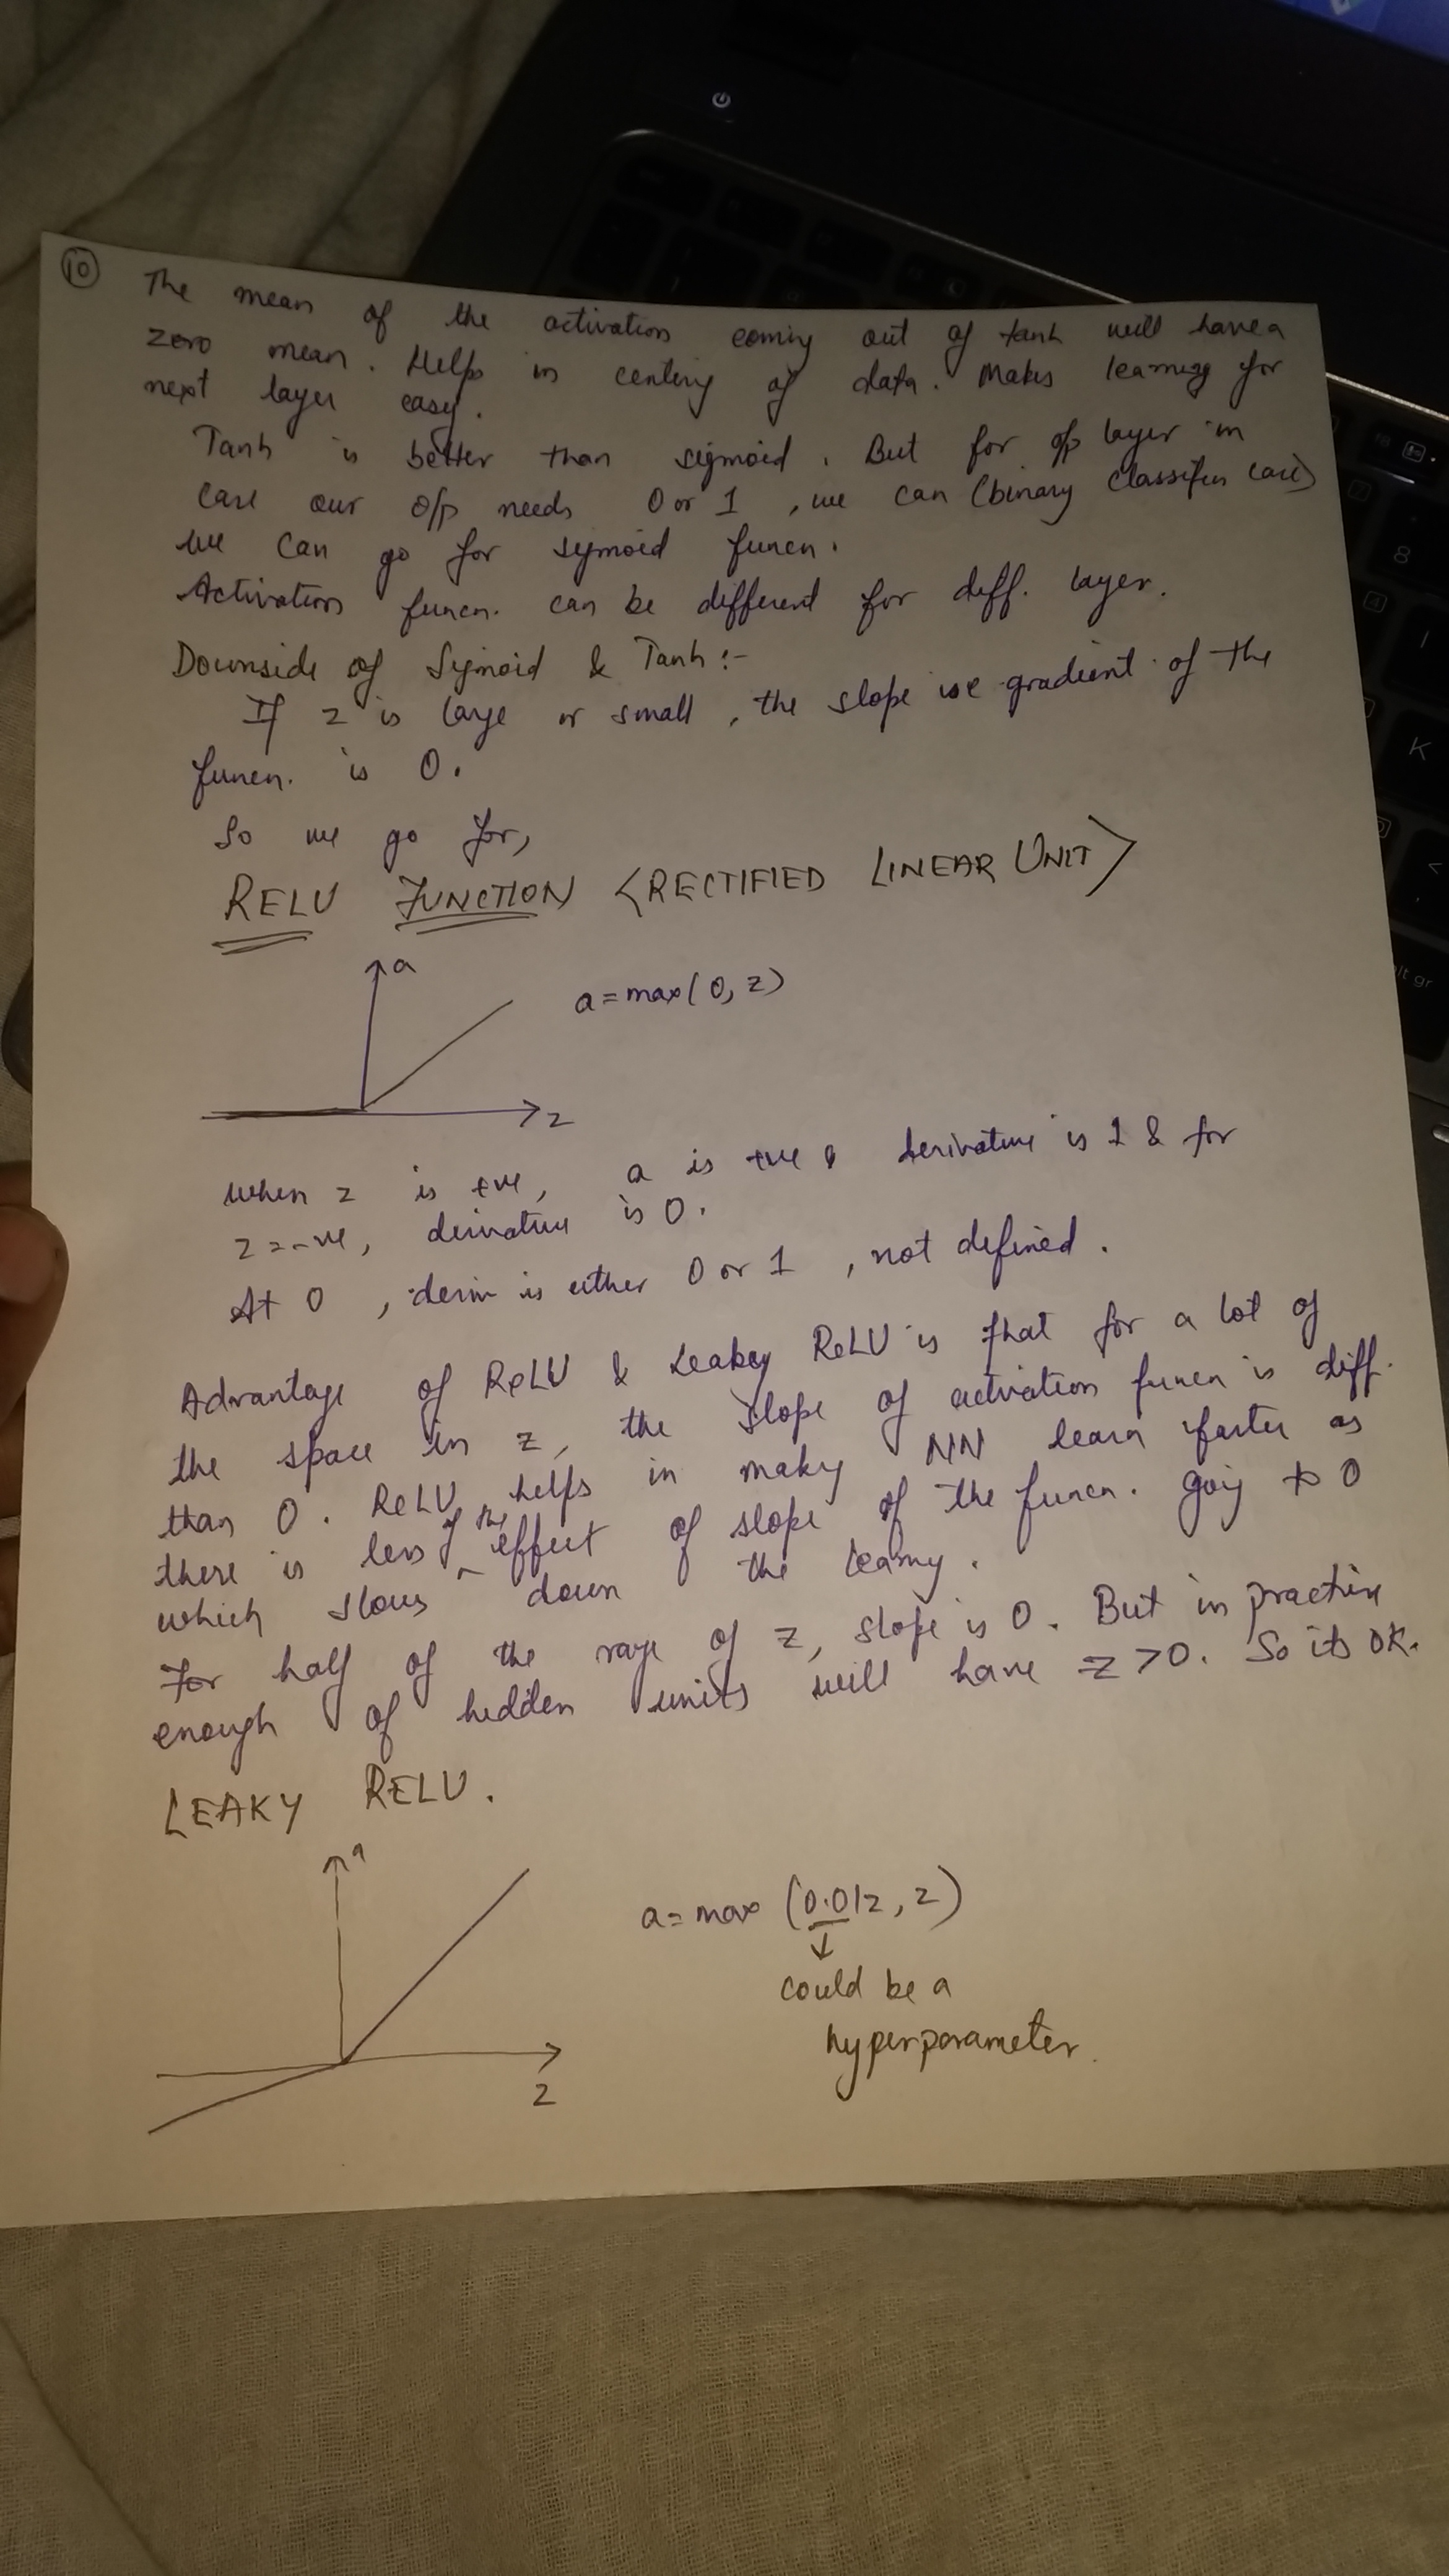 10
The mean of the activation coming out of tanh will have a
zero mean. Helps in centering of data. Makes learning for
next layer easy.
Tanh is better than sigmoid. But for o/p layer in
case our o/p needs 0 or 1, we can (binary classifier case)
we can go for sigmoid funcn.
Activation funcn. can be different for diff. layer.
Downside of Sigmoid & Tanh :-
If z is large or small, the slope gradient of the
funcn. is 0.
So we go for,
RELU FUNCTION <RECTIFIED LINEAR UNIT>
a
a = max(0, z)
z
when z is +ve, a is +ve & derivative is 1 & for
z = -ve, derivative is 0.
At 0, deriv is either 0 or 1, not defined.
Advantage of ReLU & Leakey ReLU is that for a lot of
the space in z, the slope of activation funcn is diff.
than 0. ReLU helps in making NN learn faster as
there is less of the effect of slope of the funcn. going to 0
which slows down the learning.
For half of the range of z, slope is 0. But in practice
enough of hidden units will have z > 0. So its OK.
LEAKY RELU.
a
a = max (0.01z, z)
could be a
hyperparameter.
z
8
K
alt gr